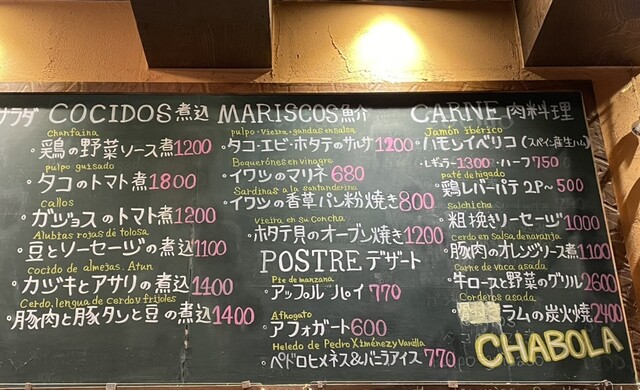 サラダ
COCIDOS 煮込
chanfaina
・鶏の野菜ソース煮 1200
pulpo guisado
・タコのトマト煮 1800
callos
・ガツョスのトマト煮 1200
Alubias rojas de tolosa
・豆とソーセージの煮込 1100
cocido de almejas. Atun
・カジキとアサリの煮込 1400
Cerdo, lengua de cerdo y frijoles
・豚肉と豚タンと豆の煮込 1400
MARISCOS 魚介
pulpo・Vieira・gandas en salsa
・タコ・エビ・ホタテのサルサ 1200
Boquerónes en vinagre
・イワシのマリネ 680
Sardinas a la santanderina
・イワシの香草パン粉焼き 800
Vieira en su Concha
・ホタテ貝のオーブン焼き 1200
POSTRE デザート
Pie de manzana
・アップルパイ 770
Afkogato
・アフォガート 600
Heledo de Pedro Ximénez y Vanilla
・ペドロヒメネス&バニラアイス 770
CARNE 肉料理
Jamón ibérico
・ハモンイベリコ (スペイン産生ハム)
・レギュラー 1300・ハーフ 750
paté de higado
・鶏レバーパテ 2P～ 500
salchicha
・粗挽きソーセージ 1000
cerdo en salsa de naranja
・豚肉のオレンジソース煮 1100
Carne de vaca asada
・牛ロースと野菜のグリル 2600
Corderos asada
ラムの炭火焼 2400
CHABOLA